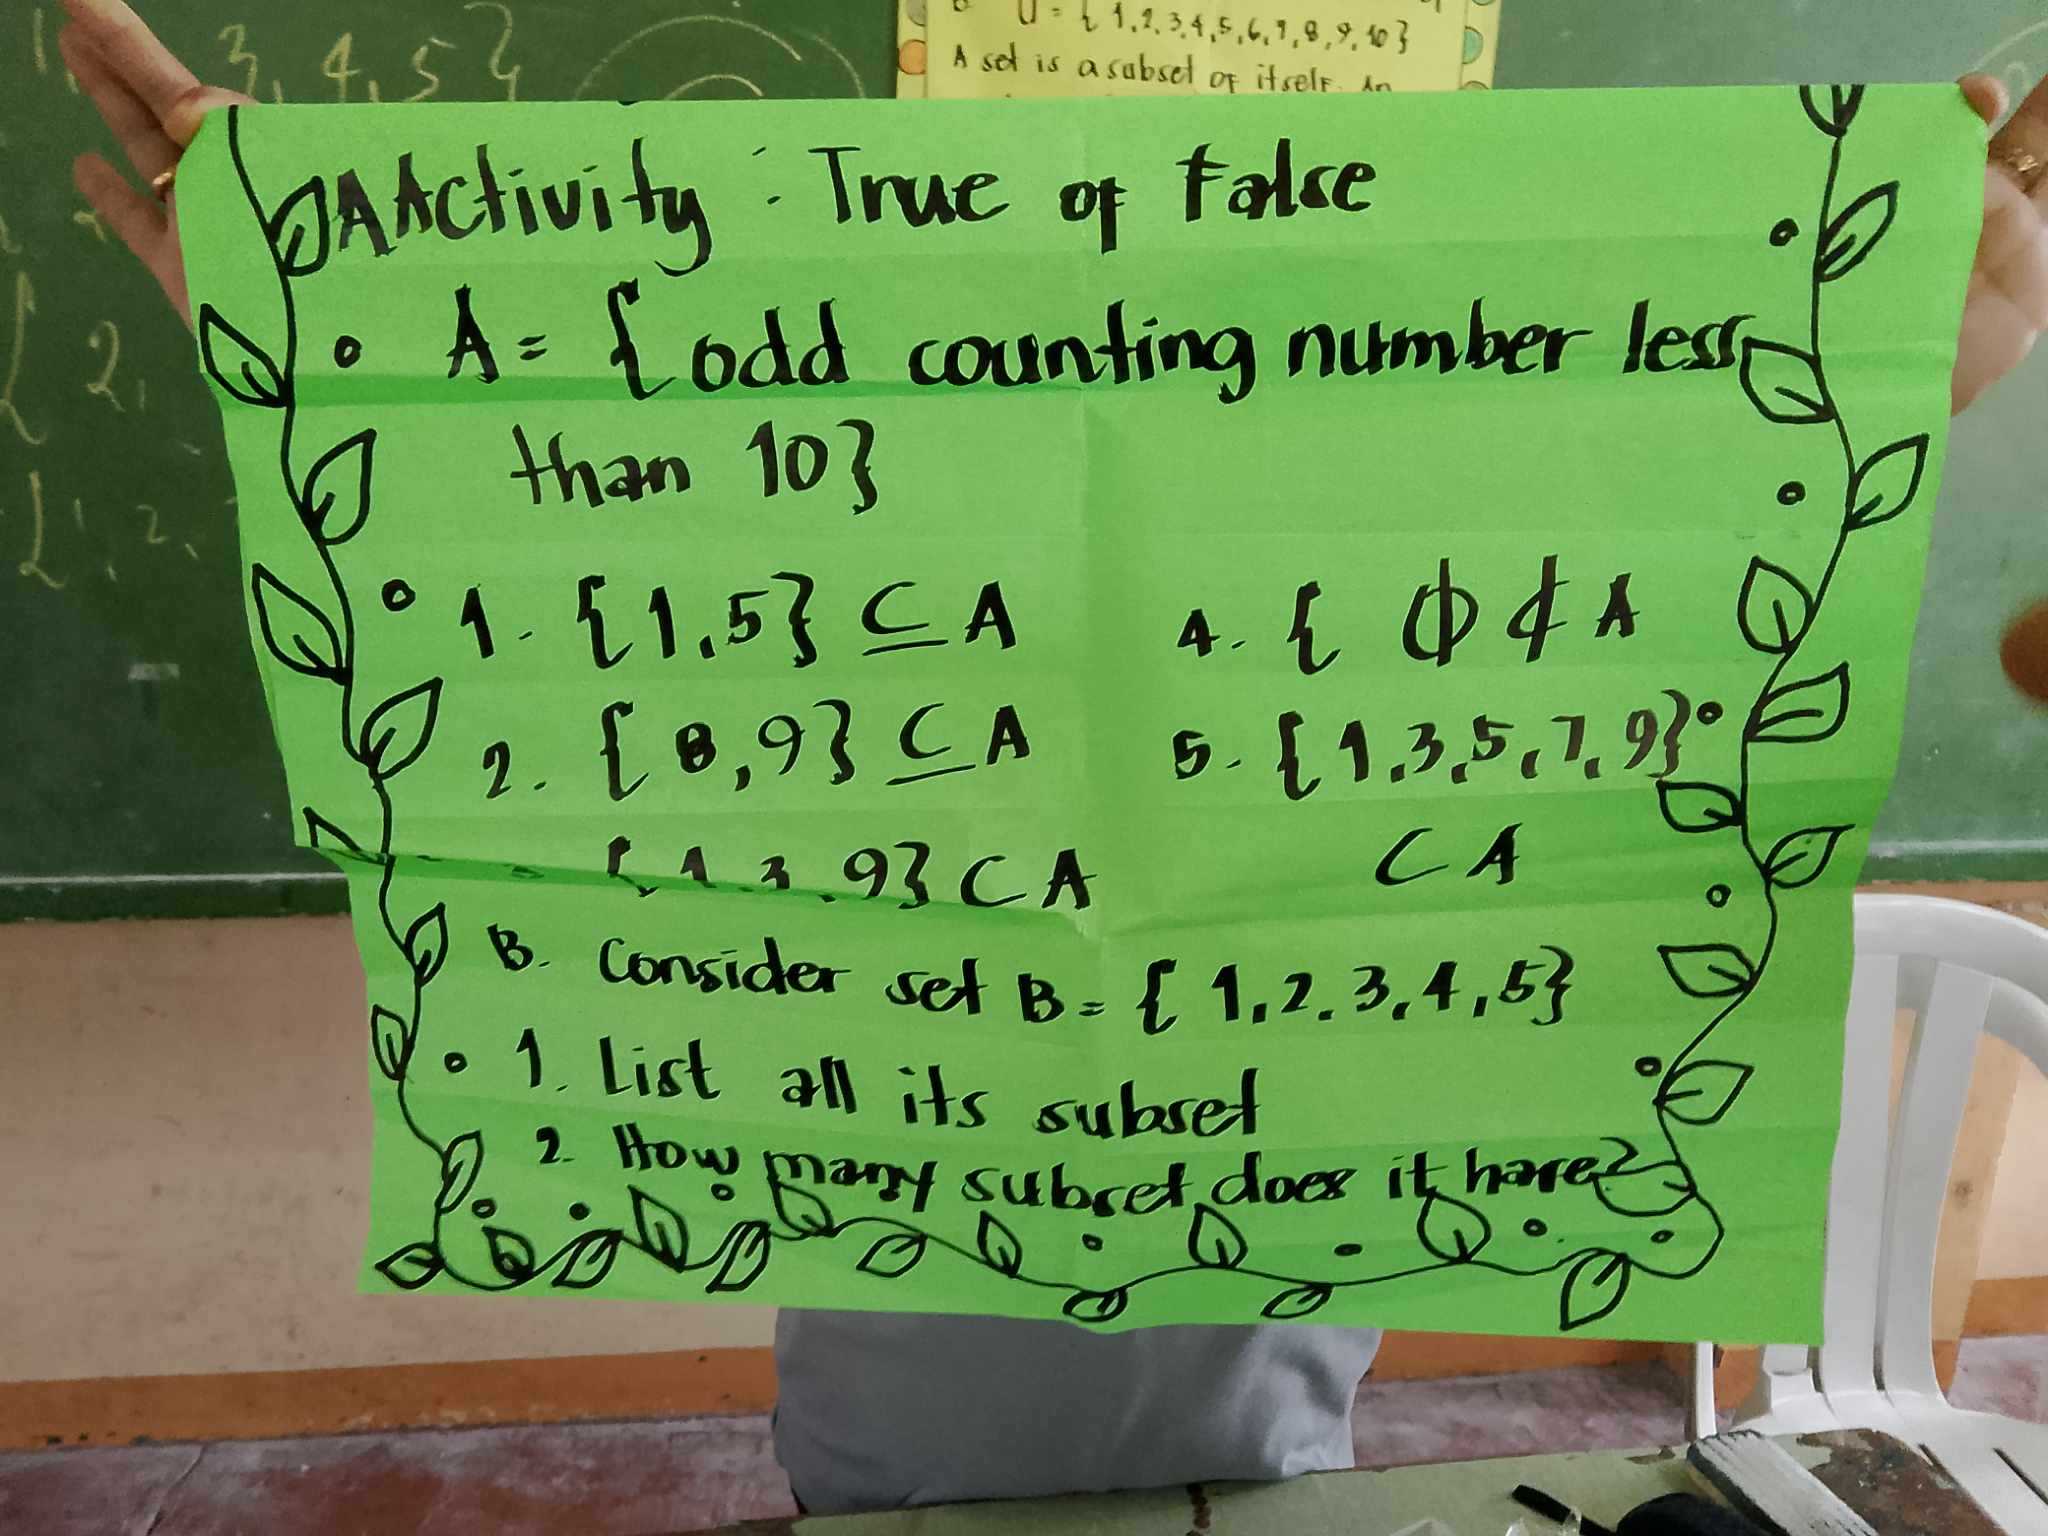 U = { 1,2,3,4,5,6,7,8,9,10 }
A set is a subset of itself. An
3, 4, 5 }
{ 2,
{ 1, 2,
A Activity : True of False
A = { odd counting number less
than 10 }
1. { 1, 5 } ⊆ A
2. { 8, 9 } ⊆ A
{ 1, 3, 9 } ⊂ A
4. { ϕ ⊄ A
5. { 1, 3, 5, 7, 9 }
⊂ A
B. Consider set B = { 1, 2, 3, 4, 5 }
1. List all its subset
2. How many subset does it have?